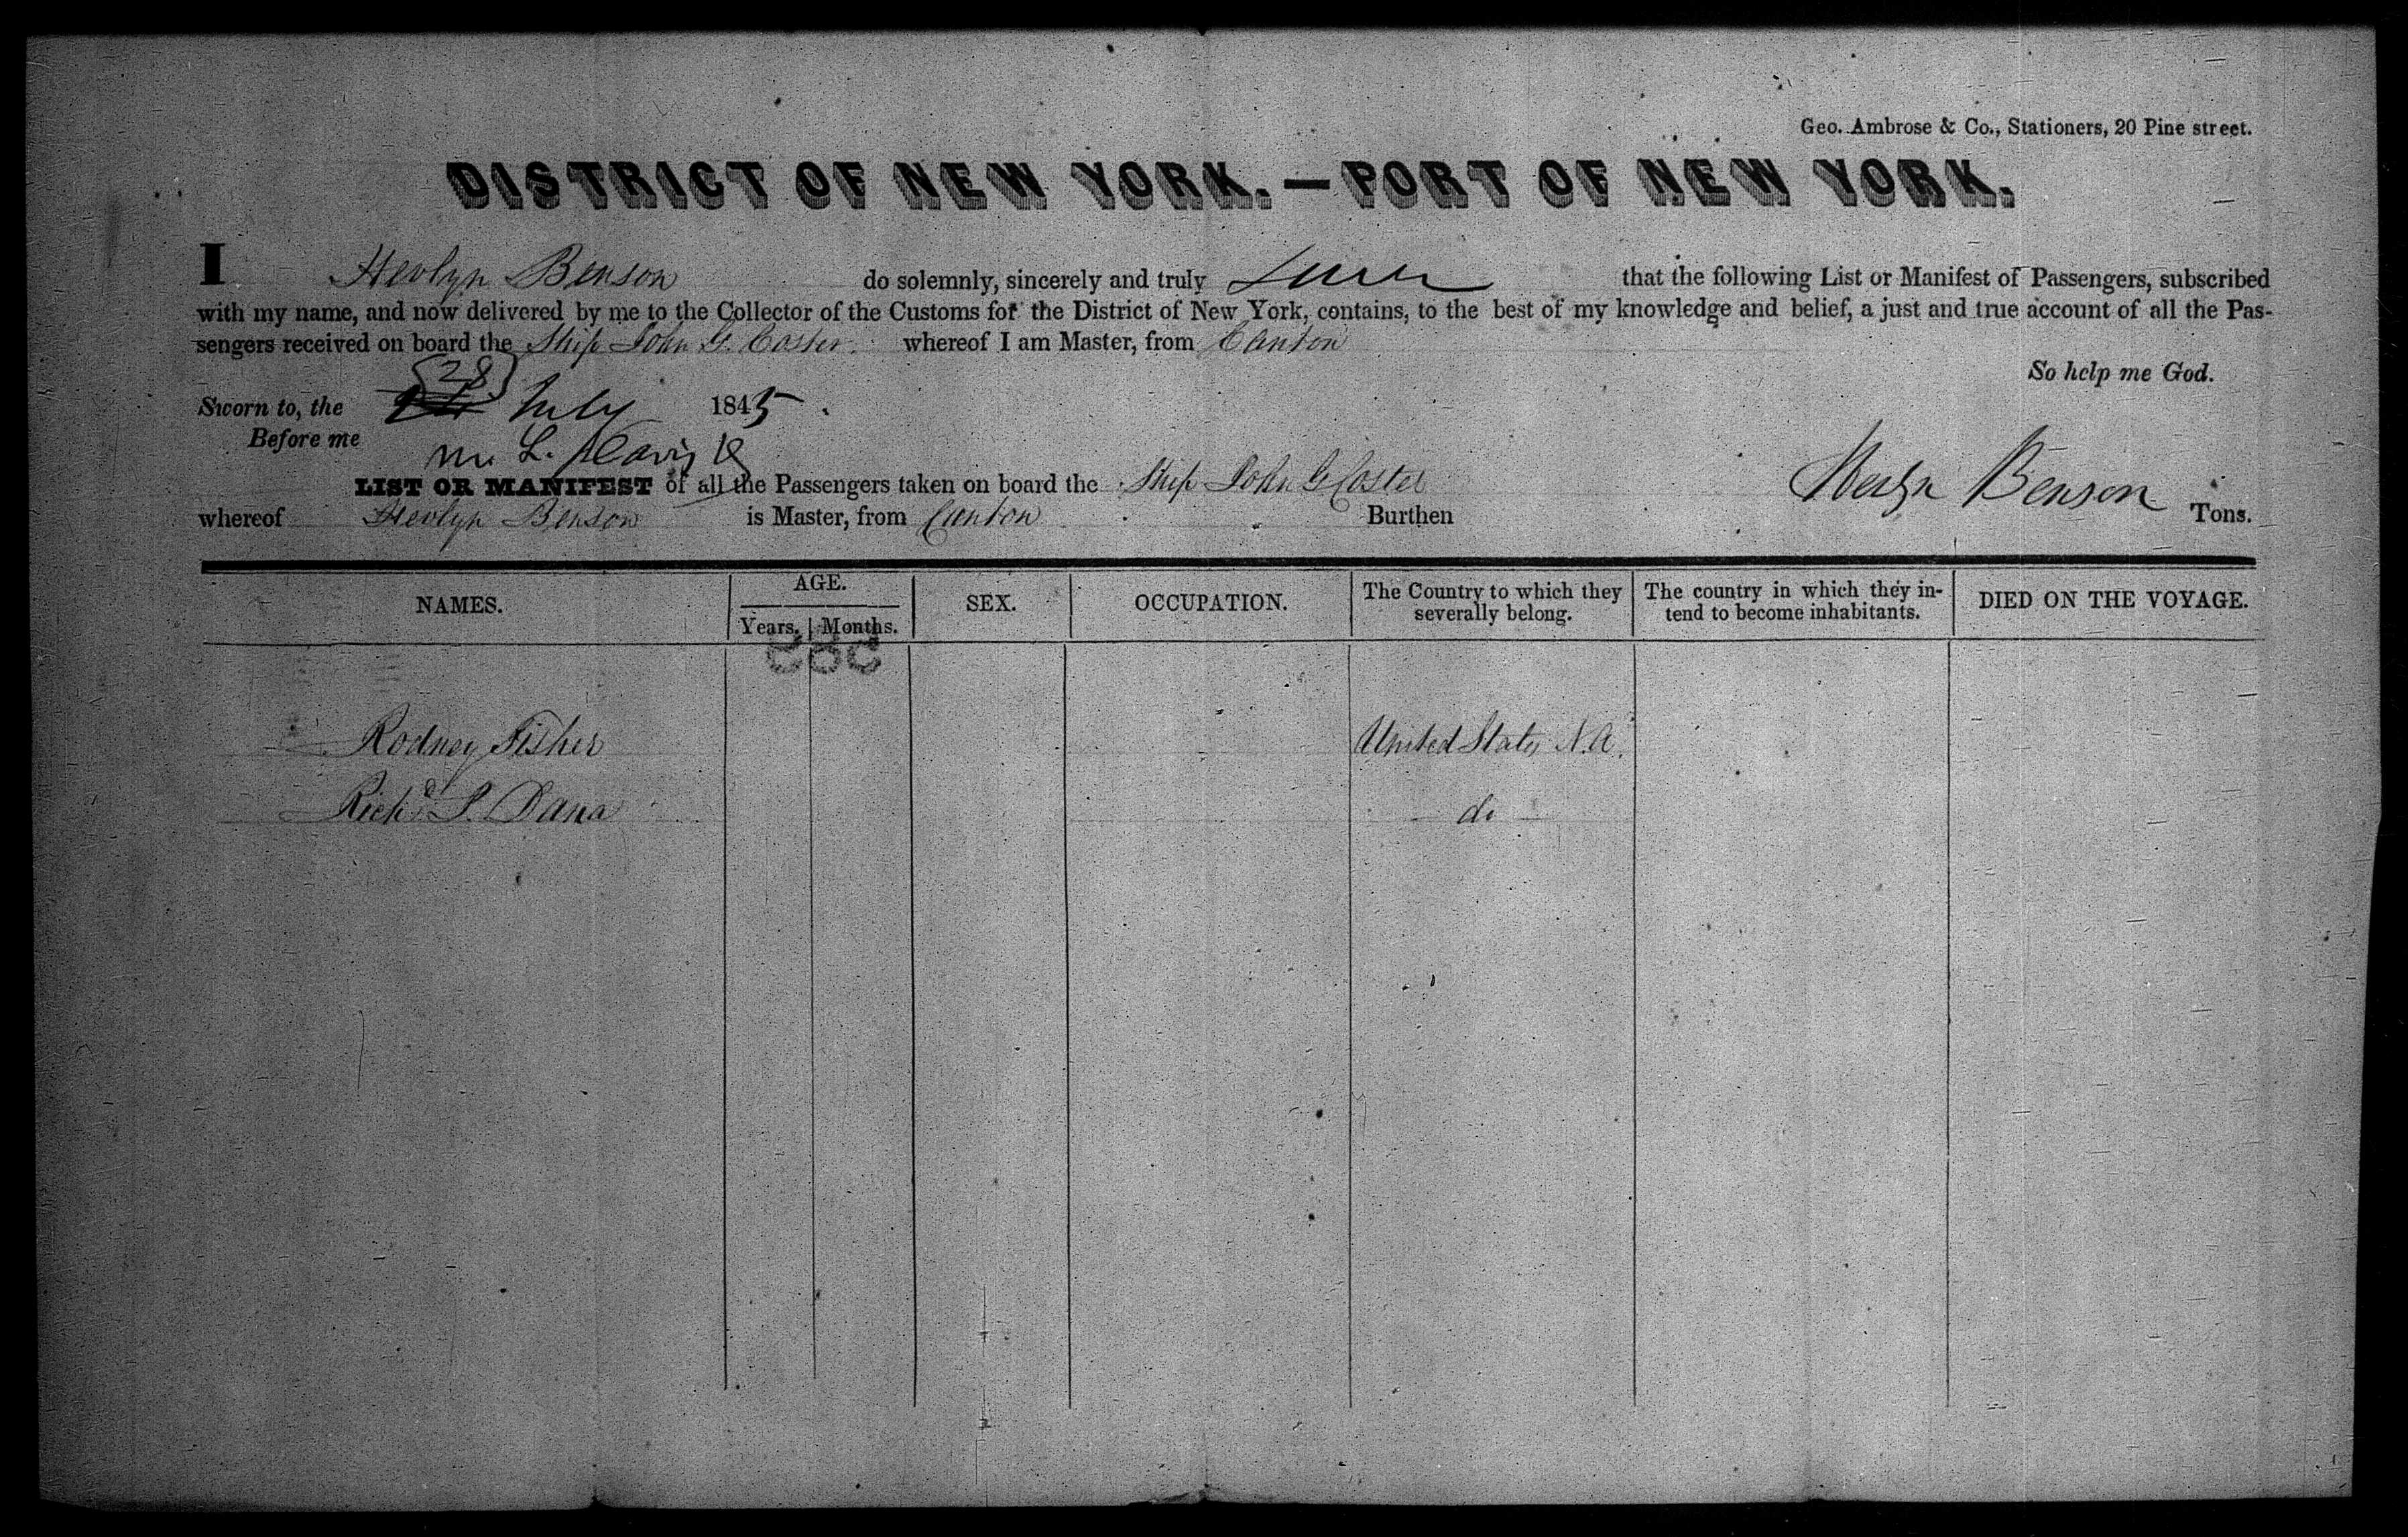 Geo. Ambrose & Co., Stationers, 20 Pine street.
DISTRICT OF NEW YORK.—PORT OF NEW YORK.
I Hevlyn Benson do solemnly, sincerely and truly Swear that the following List or Manifest of Passengers, subscribed
with my name, and now delivered by me to the Collector of the Customs for the District of New York, contains, to the best of my knowledge and belief, a just and true account of all the Pas-
sengers received on board the Ship John G. Coster. whereof I am Master, from Canton
So help me God.
Sworn to, the 28 July 1845.
Before me
M. L. Davis
Hevlyn Benson
LIST OR MANIFEST of all the Passengers taken on board the Ship John G Coster
whereof Hevlyn Benson is Master, from Canton Burthen Tons.
NAMES. AGE. SEX. OCCUPATION. The Country to which they severally belong. The country in which they in-tend to become inhabitants. DIED ON THE VOYAGE.
Years. Months.
Rodney Fisher United States N.A.
Richd. P. Dana do